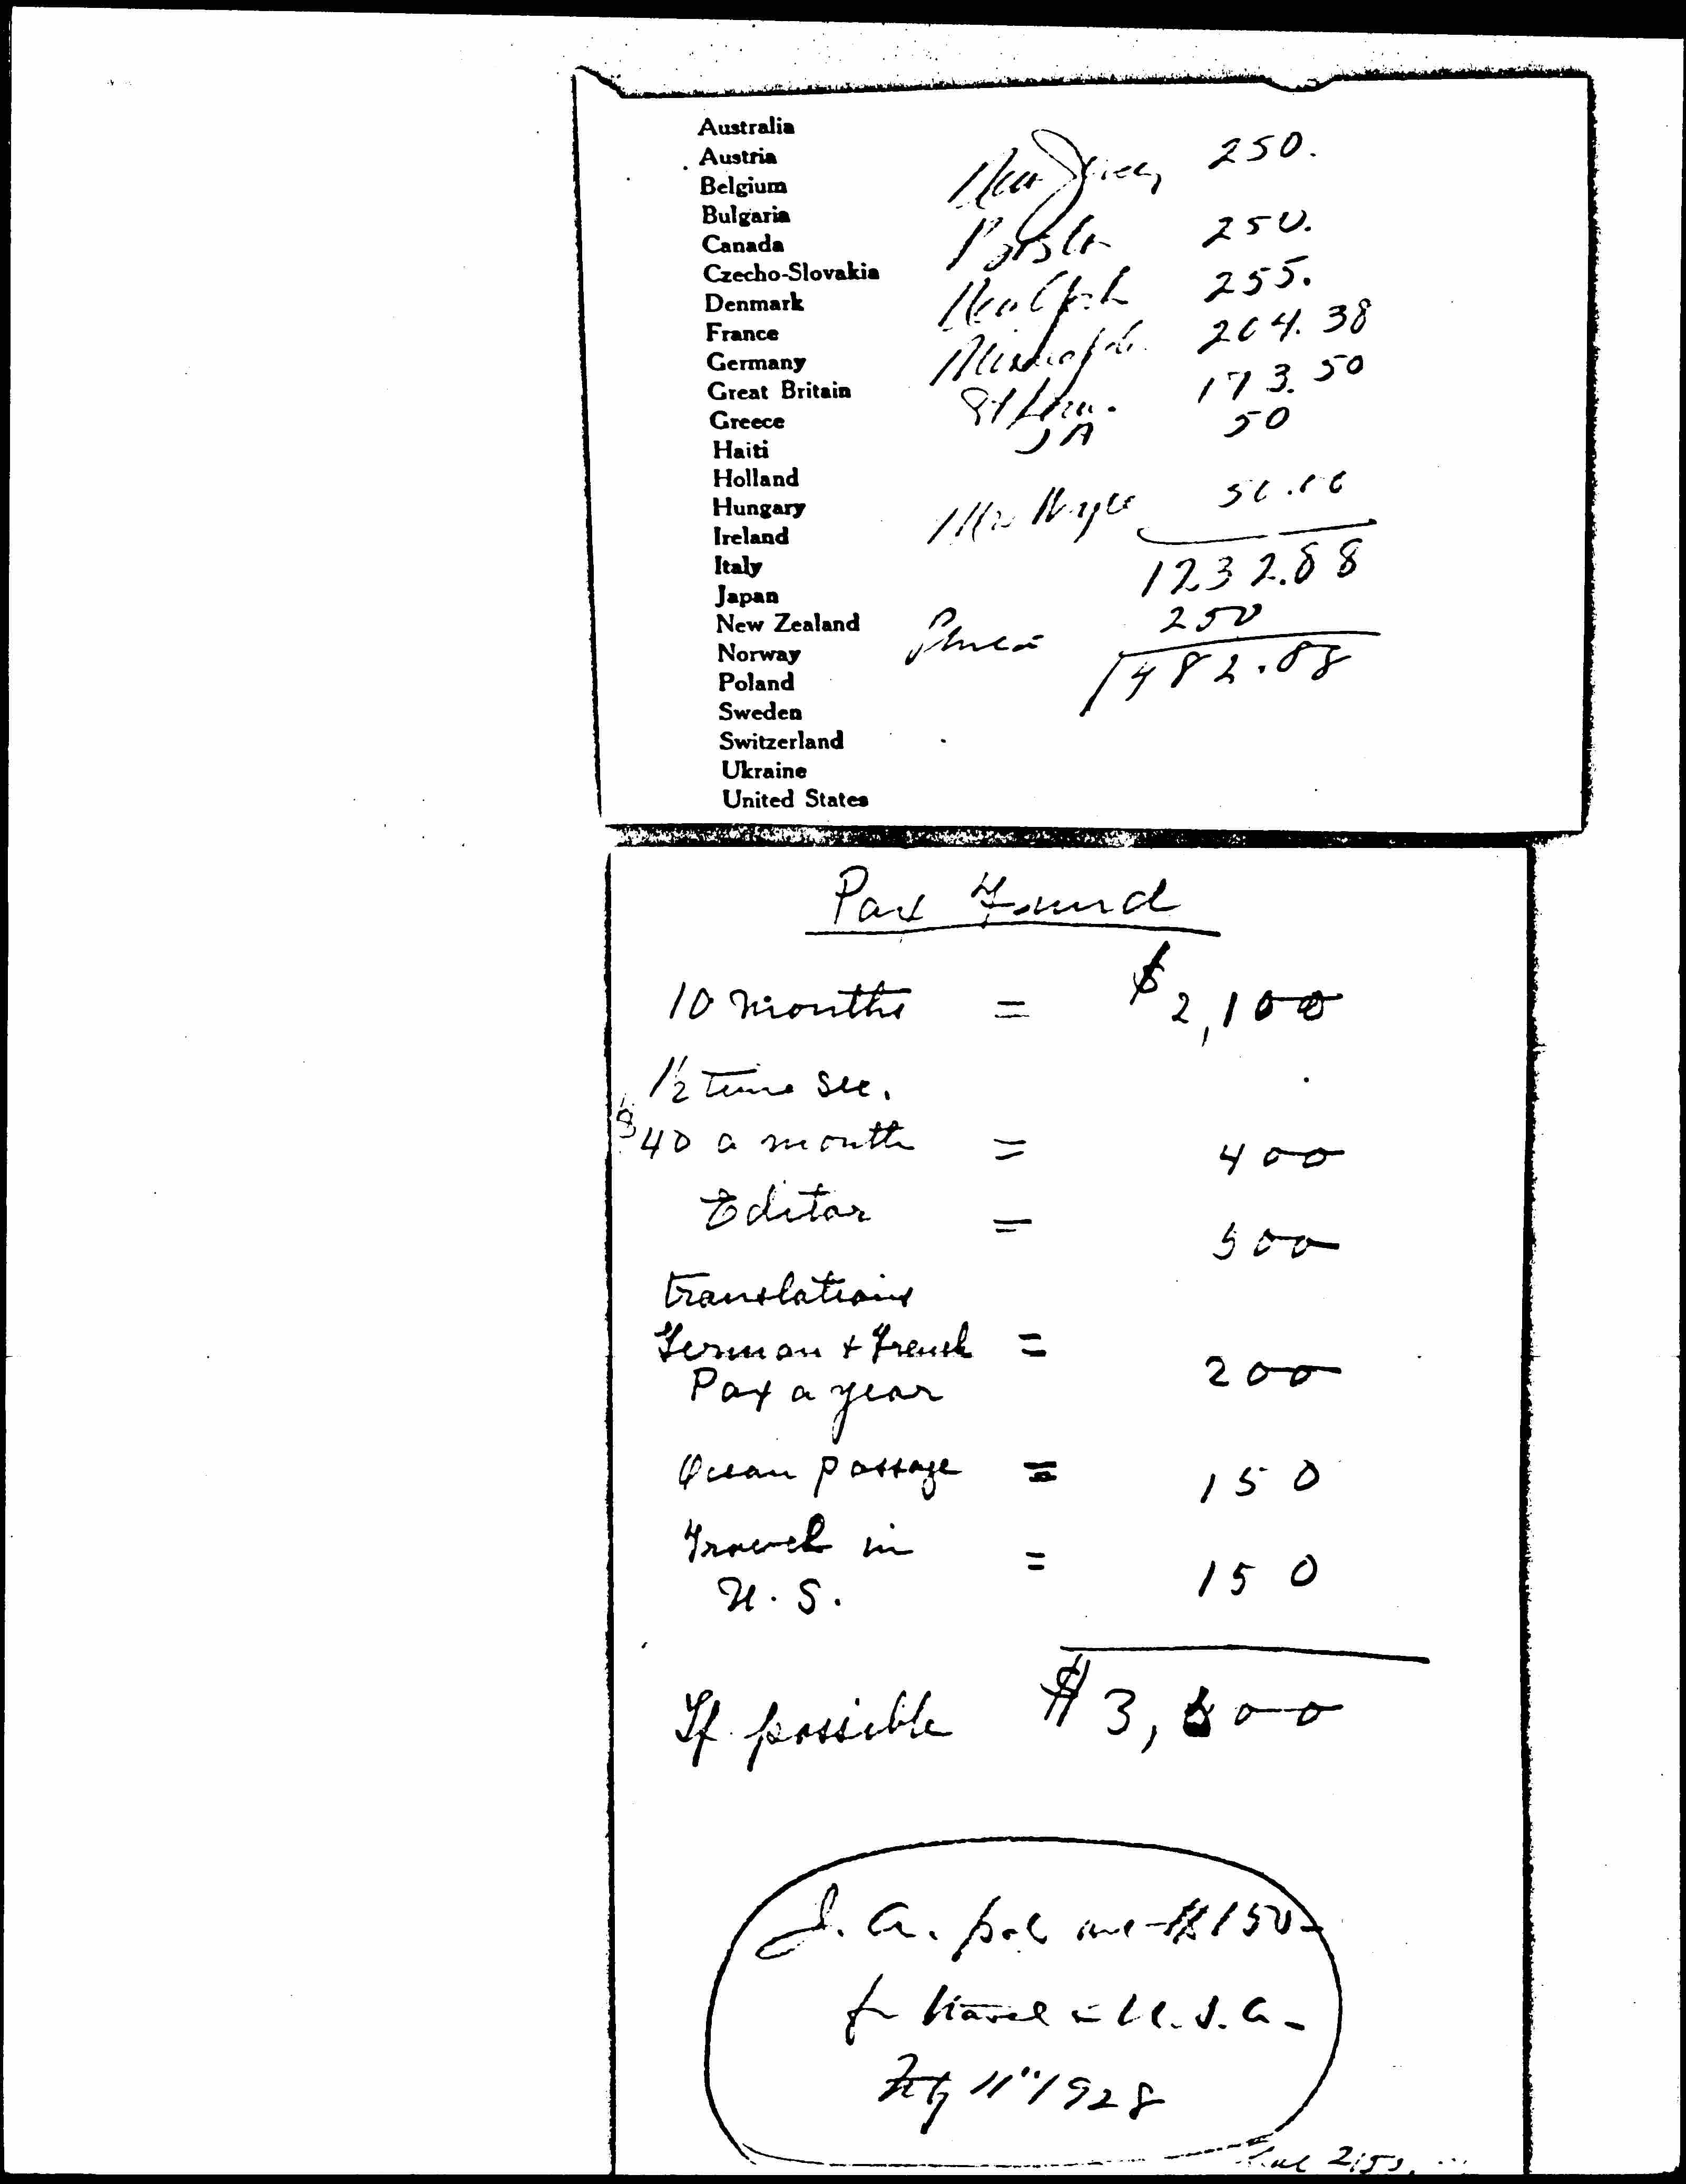 Australia
Austria
Belgium
Bulgaria
Canada
Czecho-Slovakia
Denmark
France
Germany
Great Britain
Greece
Haiti
Holland
Hungary
Ireland
Italy
Japan
New Zealand
Norway
Poland
Sweden
Switzerland
Ukraine
United States
New Jersey 250.
Boston 250.
New York 255.
Minneapolis 204.38
St Louis. 173.50
JA 50
Mrs 50.00
1232.88
Phila 250
1482.88
Pax Fund
10 months = $2,100
1/2 time sec.
$40 a month = 400
Editor = 500
translations
German & French =
Pax a year 200
Ocean passage = 150
Travel in = 150
U. S.
If possible $3,600
J. A. pd me $150
for travel in U.S.A.
11" 1928